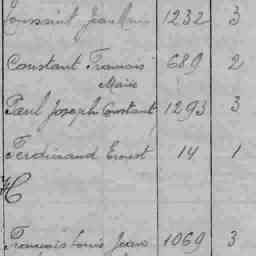 Toussaint Jean Marie 1232 3
Constant François 689 2
Marie
Paul Joseph Constant 1293 3
Ferdinand Ernest 14 1
H
François Louis Jean 1069 3